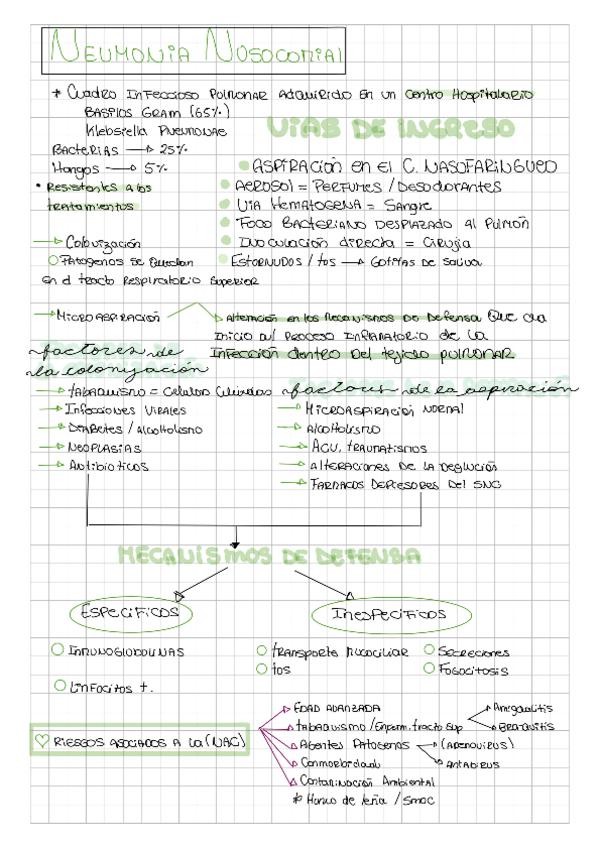 Neumonia Nosocomial
* Cuadro Infeccioso Pulmonar Adquirido en un Centro Hospitalario
Baspios Gram (65%)
Klebsiella Pneumonae
Bacterias → 25%
Hongos → 5%
• Resistentes a los
tratamientos
→ Colonización
○ Patogenos se quedan
en el tracto respiratorio superior
Vías de ingreso
• Aspiración en el C. Nasofaringueo
• Aerosol = Perfumes / Desodorantes
• Via Hematogena = Sangre
• Foco Bacteriano desplazado al Pulmón
• Inoculación directa = Cirujia
• Estornudos / tos → Gotitas de saliva
→ Microaspiración
Alteración en los mecanismos de defensa que da
inicio al proceso inflamatorio de la
infección dentro del tejido pulmonar
factores de
la colonización
→ tabaquismo = Celulas
→ Infecciones Virales
→ Diabetes / Alcoholismo
→ Neoplasias
→ Antibioticos
factores de la aspiración
→ Microaspiración normal
→ Alcoholismo
→ ACV, traumatismos
→ Alteraciones de la deglución
→ Farmacos depresores del SNC
Mecanismos de defensa
Especificos
○ Inmunoglobulinas
○ Linfocitos t.
Inespecificos
○ transporte mucociliar
○ tos
○ Secreciones
○ Fagocitosis
♡ Riesgos asociados a la (NAC)
Edad avanzada
tabaquismo / Enferm. tracto sup
Amigdalitis
Bronquitis
Agentes Patogenos
(Adenovirus)
Comorbordidad
Contaminación Ambiental
* Humo de leña / Smoc